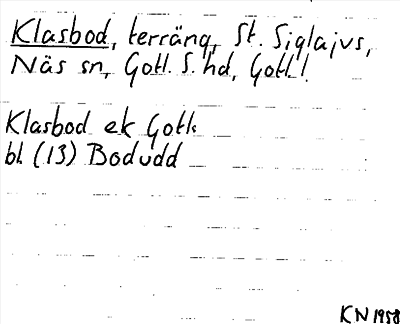 Klasbod, terräng, St. Siglajvs,
Näs sn, Gotl. S. hd, Gotl.!
Klasbod ek Gotl.
bl. (13) Bodudd
KN 1958